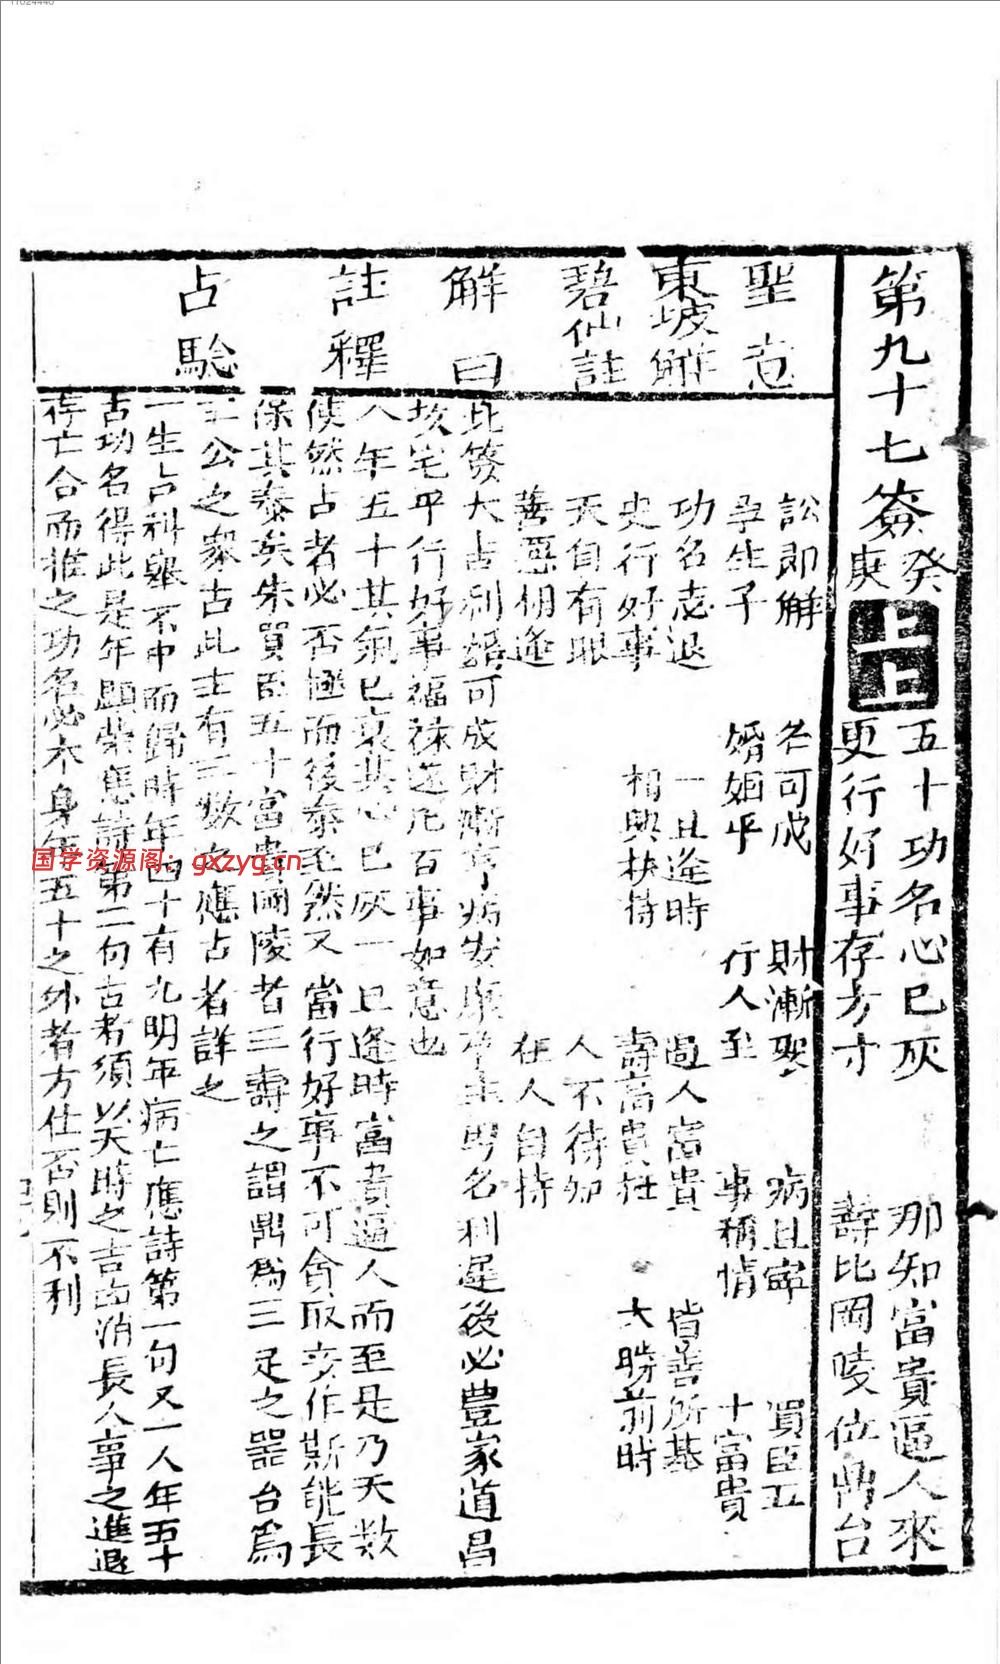 11024440
第九十七簽 癸庚 上上
五十功名心已灰 那知富貴逼人來
更行好事存方寸 壽比岡陵位鼎台
聖意
訟即解 名可成 財漸聚 病且寧 買臣五
孕生子 婚姻平 行人至 事稱情 十富貴
東坡解
功名志退 一旦逢時 過人富貴 皆善所基
史行好事 相與扶持 壽高貴在 大勝前時
碧仙註
天自有眼 人不待知
善惡相逢 在人自持
解曰
此簽大占利婚可成財漸亨病安康孕生男名利遲後必豊家道昌
坟宅平行好事福祿迭凡百事如意也
註釋
人年五十其氣已衰其心已灰一旦逢時富貴逼人而至是乃天数
使然占者必否極而後泰不然又當行好事不可貪取妄作斯能長
保其泰矣朱買臣五十富貴岡陵者三壽之謂鼎爲三足之器台爲
三公之象古此士有三数之應占者詳之
占驗
一生占科舉不中而歸時年四十有九明年病亡應詩第一句又一人年五十
占功名得此是年顯榮應詩第二句古者須以天時之吉凶消長人事之進退
存亡合而推之功名必本身年五十之外者方仕否則不利
国学资源阁：gxzyg.cn